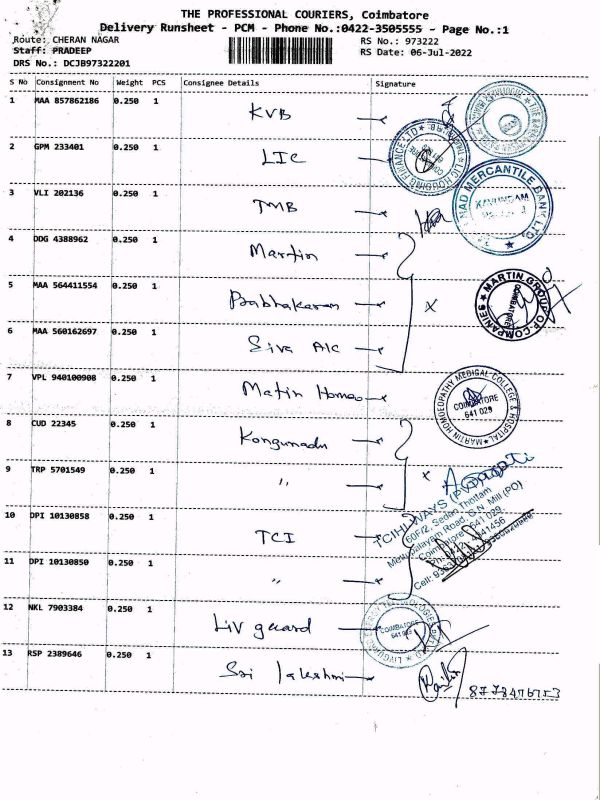 THE PROFESSIONAL COURIERS, Coimbatore
Delivery Runsheet - PCM - Phone No.:0422-3505555 - Page No.:1
Route: CHERAN NAGAR RS No.: 973222
Staff: PRADEEP RS Date: 06-Jul-2022
DRS No.: DCJB97322201
S No Consignment No Weight PCS Consignee Details Signature
1 MAA 857862186 0.250 1 KVB
2 GPM 233401 0.250 1 LIC
LIC HOUSING FINANCE LTD
3 VLI 202136 0.250 1 TMB
MERCANTILE BANK LTD.
4 DDG 4388962 0.250 1 Martin
5 MAA 564411554 0.250 1 Prabhakaran x
MARTIN GROUP OF COMPANIES
COIMBATORE
6 MAA 560162697 0.250 1 Siva A/C
7 VPL 940100908 0.250 1 Matin Homeo
MARTIN HOMOEOPATHY MEDICAL COLLEGE & HOSPITAL
COIMBATORE
641 029
8 CUD 22345 0.250 1 Kongunadu
9 TRP 5701549 0.250 1 " x
10 DPI 10130858 0.250 1 TCI
60F/2, Sedan Thottam
Coimbatore - 641 029
11 DPI 10130850 0.250 1 "
12 NKL 7903384 0.250 1 Liv guard
COIMBATORE
13 RSP 2389646 0.250 1 Sri lakshmi